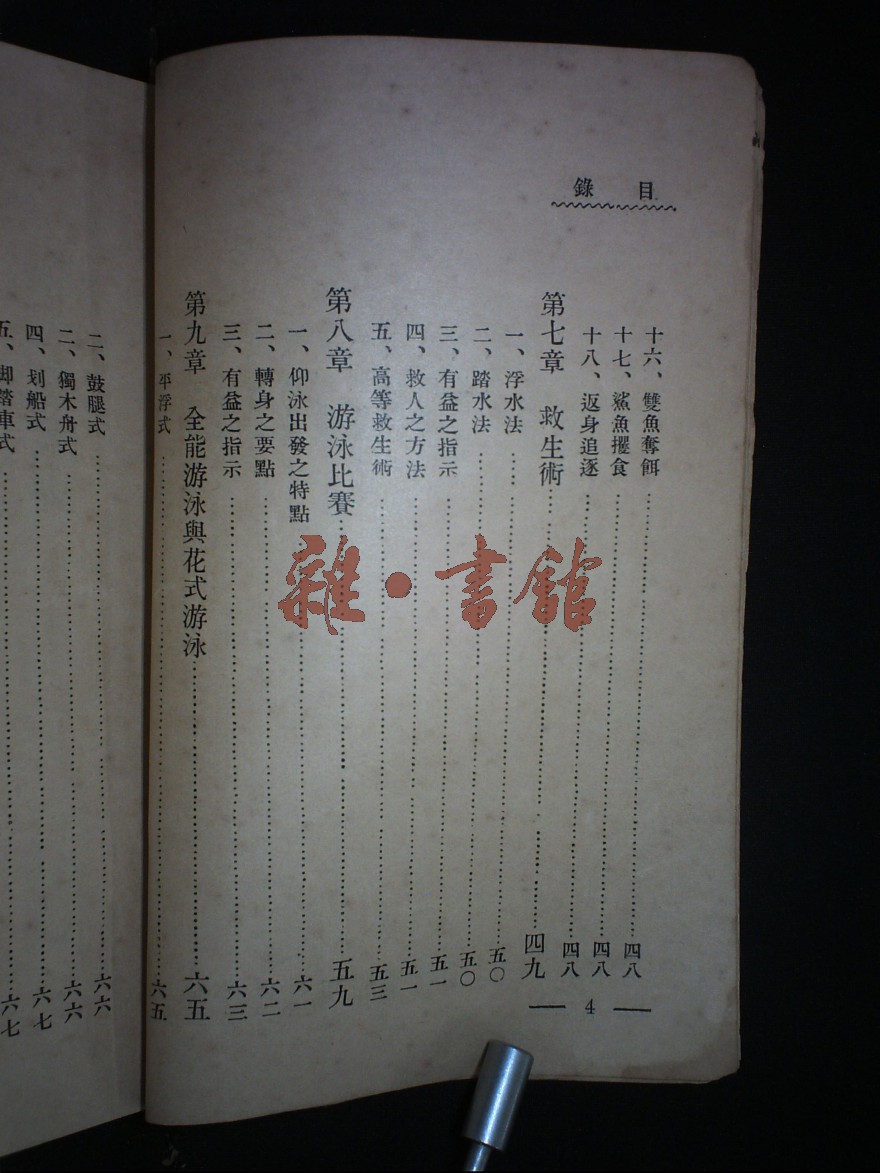 目錄
十六、雙魚奪餌……四八
十七、鯊魚攫食……四八
十八、返身追逐……四八
第七章 救生術……四九
一、浮水法……五〇
二、踏水法……五〇
三、有益之指示……五一
四、救人之方法……五一
五、高等救生術……五三
第八章 游泳比賽……五九
一、仰泳出發之特點……六一
二、轉身之要點……六二
三、有益之指示……六三
第九章 全能游泳與花式游泳……六五
一、平浮式……六五
二、鼓腿式……六六
二、獨木舟式……六六
四、划船式……六七
五、脚踏車式……六七
— 4 —
雜·書館